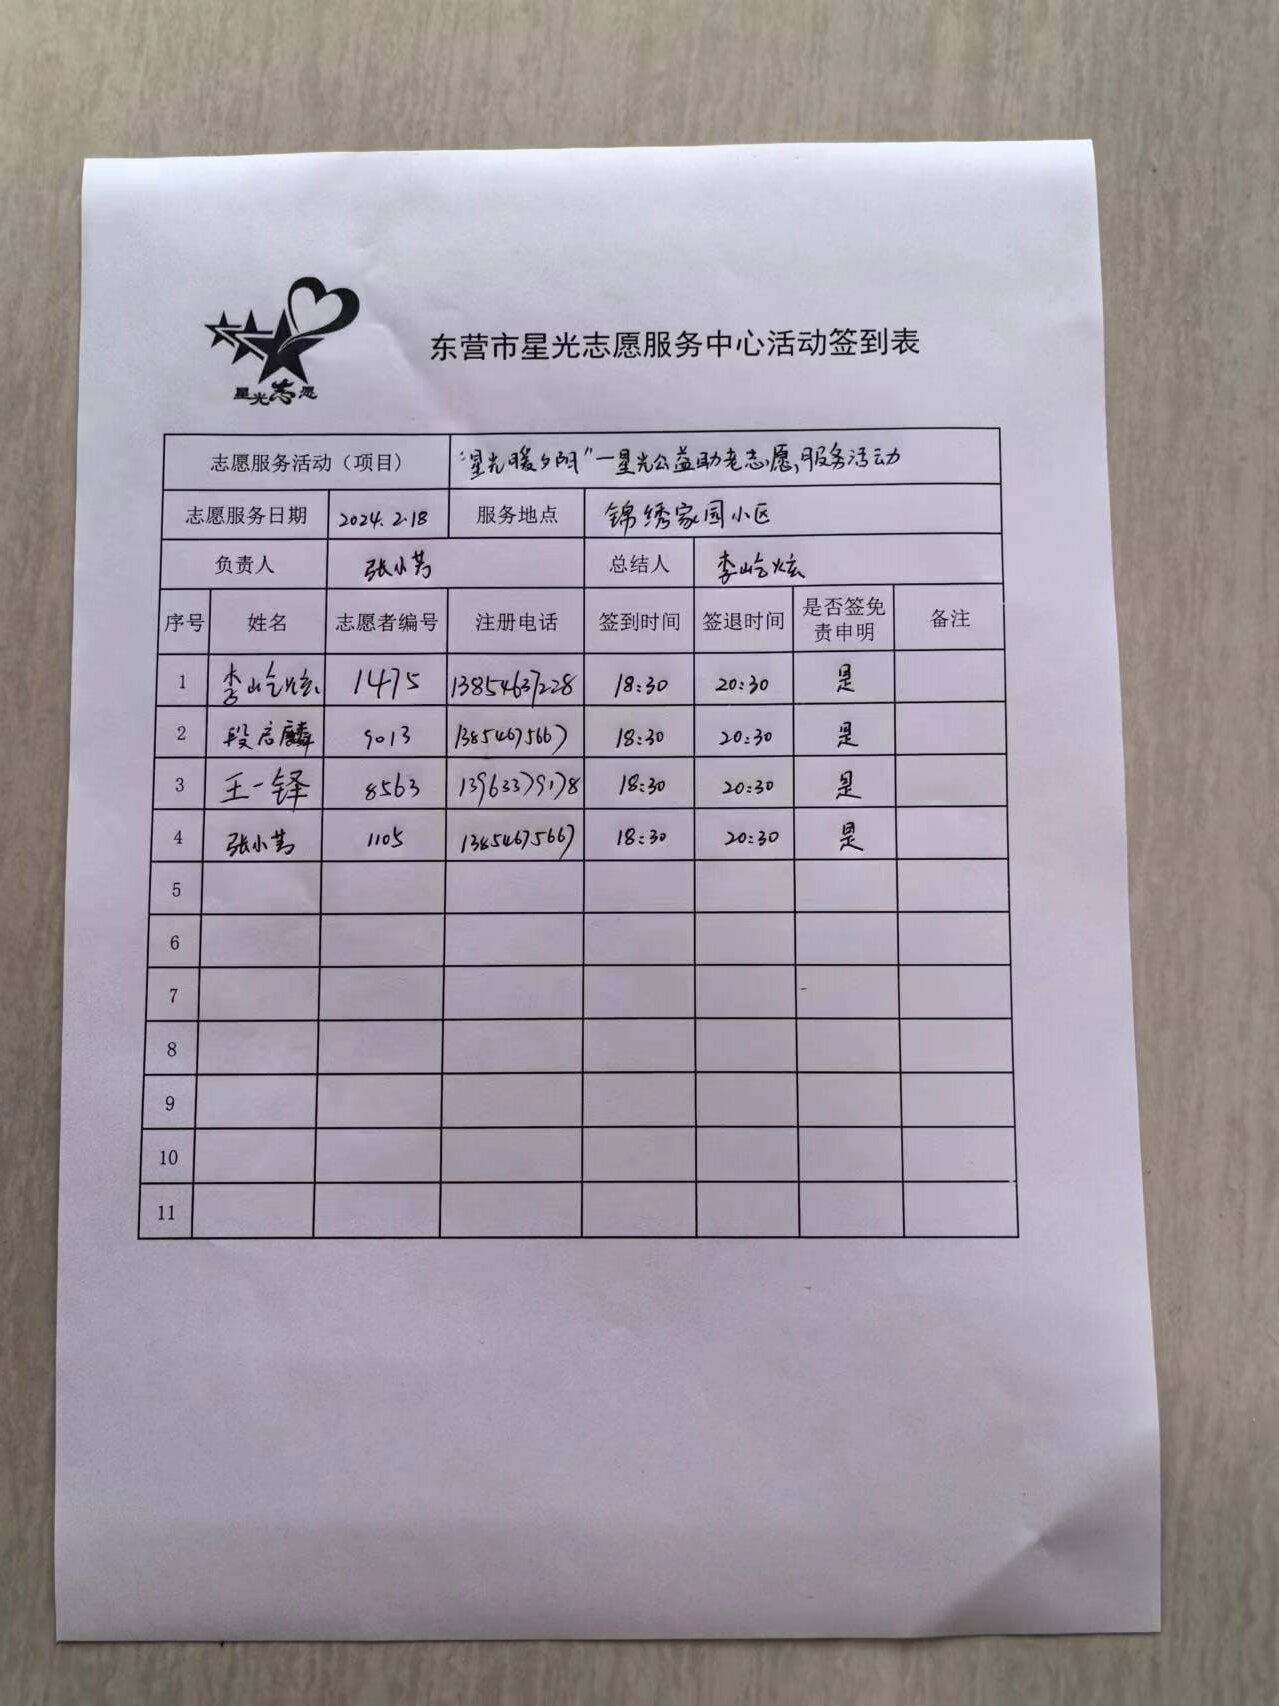 星光志愿
东营市星光志愿服务中心活动签到表
志愿服务活动（项目） “星光暖夕阳”—星光公益助老志愿服务活动
志愿服务日期 2024.2.18 服务地点 锦绣家园小区
负责人 张小芳 总结人 李屹炫
序号 姓名 志愿者编号 注册电话 签到时间 签退时间 是否签免责申明 备注
1 李屹炫 1475 13854637228 18:30 20:30 是
2 段启麟 9013 13854675667 18:30 20:30 是
3 王一铎 8563 13963379178 18:30 20:30 是
4 张小芳 1105 13854675667 18:30 20:30 是
5
6
7
8
9
10
11